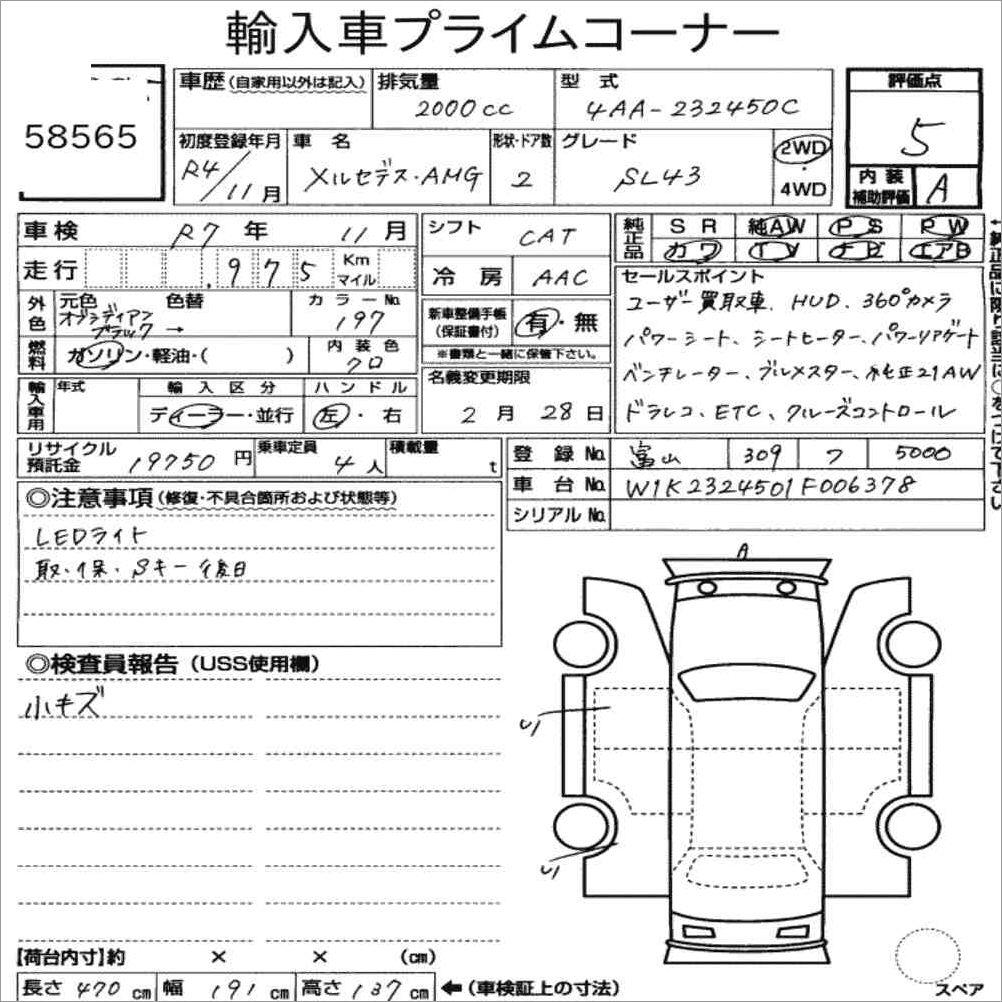 輸入車プライムコーナー
58565
車歴(自家用以外は記入) 排気量 2000cc 型式 4AA-232450C 評価点 5
初度登録年月 R4/11月 車名 メルセデス・AMG 形状・ドア数 2 グレード SL43 2WD・4WD 内装補助評価 A
車検 R7年 11月 シフト CAT 純正品 SR 純AW PS PW
走行 975 Km マイル 冷房 AAC カワ TV ナビ エアB
←純正品に限り該当に○をつけて下さい
外色 元色 オブシディアンブラック → 色替 カラーNo. 197 新車整備手帳(保証書付) 有・無
燃料 ガソリン・軽油・( ) 内装色 クロ ※書類と一緒に保管下さい。
輸入車用 年式 輸入区分 ディーラー・並行 ハンドル 左・右 名義変更期限 2月28日
セールスポイント
ユーザー買取車、HUD、360°カメラ
パワーシート、シートヒーター、パワーリアゲート
ベンチレーター、ブルメスター、純正21AW
ドラレコ、ETC、クルーズコントロール
リサイクル預託金 19750円 乗車定員 4人 積載量 t
登録No. 富山 309 フ 5000
車台No. W1K2324501F006378
シリアルNo.
◎注意事項(修復・不具合箇所および状態等)
LEDライト
取・保・Sキー後日
◎検査員報告(USS使用欄)
小キズ
A
U1
U1
【荷台内寸】約 × × (cm)
長さ 470cm 幅 191cm 高さ 137cm ←(車検証上の寸法)
スペア